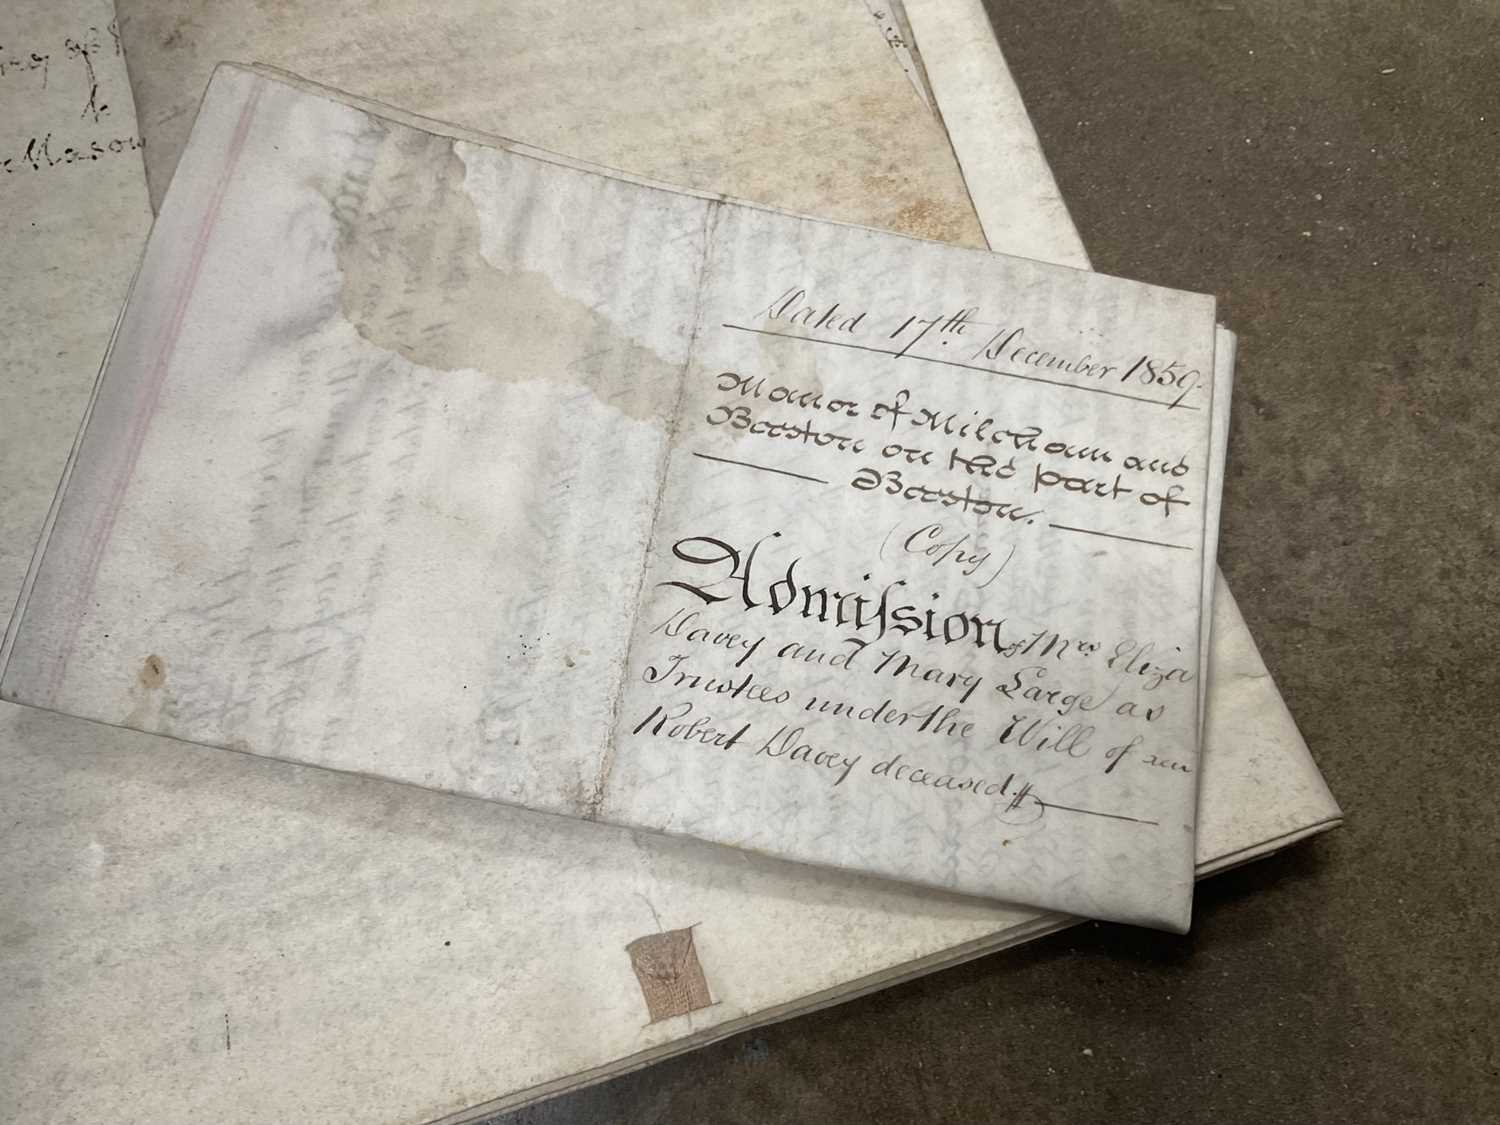 Mason
Dated 17th December 1859.
Manor of Mileham and
Beeston on the part of
Beeston.
(Copy)
Admission of Mrs Eliza
Davey and Mary Large as
Trustees under the Will of Mr
Robert Davey deceased